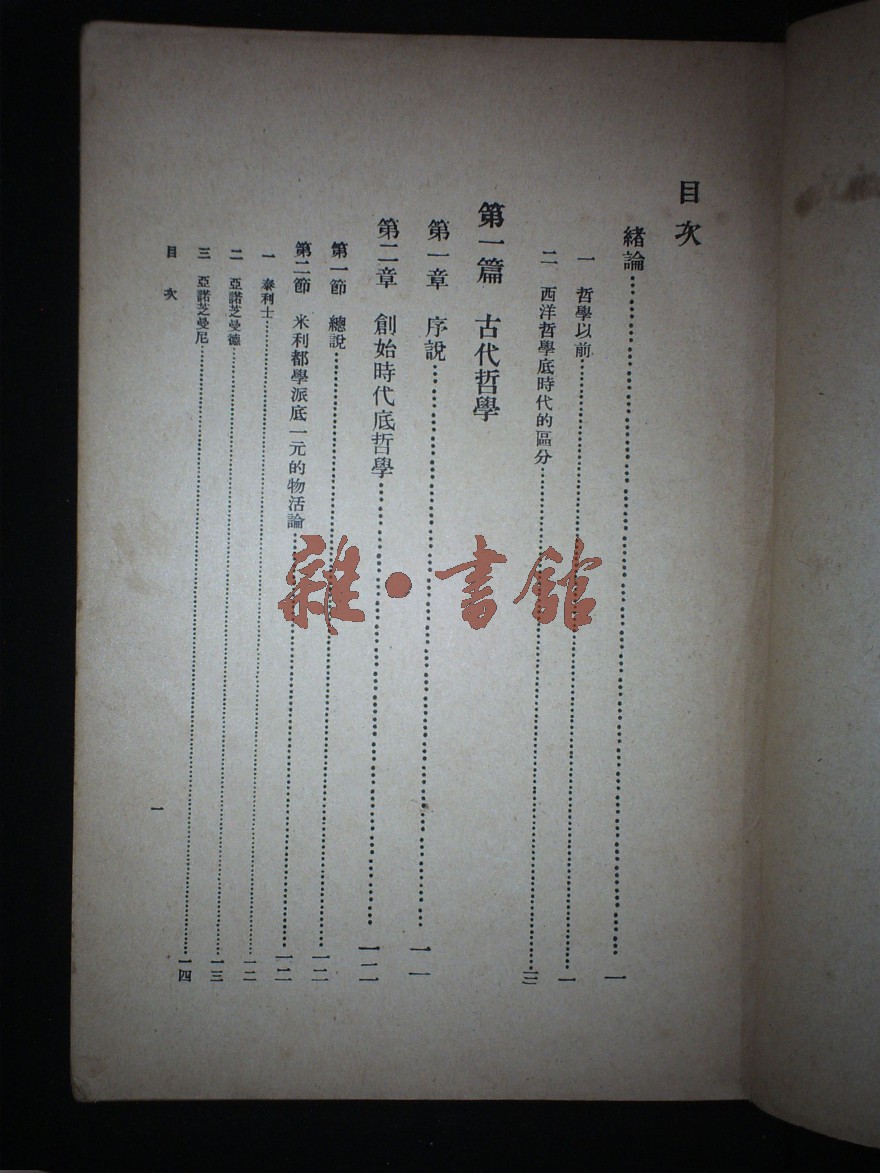 目次
緒論……一
一 哲學以前……一
二 西洋哲學底時代的區分……三
第一篇 古代哲學
第一章 序說……一一
第二章 創始時代底哲學……一二
第一節 總說……一二
第二節 米利都學派底一元的物活論……一二
一 泰利士……一二
二 亞諾芝曼德……一三
三 亞諾芝曼尼……一四
目次
一
雜·書館